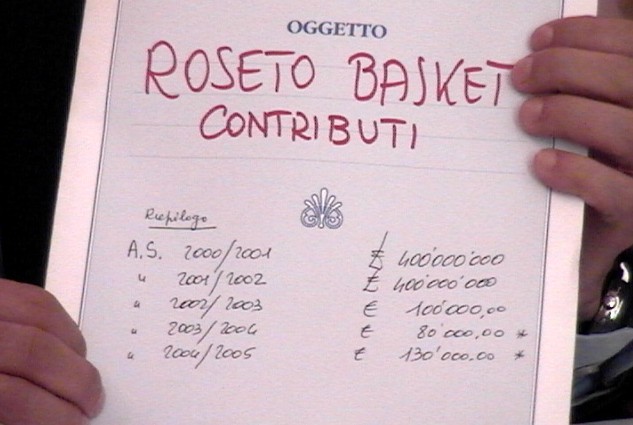 OGGETTO
ROSETO BASKET
CONTRIBUTI
Riepilogo
A.S. 2000/2001 £ 400'000'000
" 2001/2002 £ 400'000'000
" 2002/2003 € 100'000,00
" 2003/2004 € 80'000,00 *
" 2004/2005 € 130'000.00 *